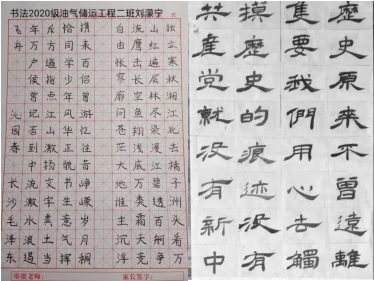 书法2020级油气储运工程二班刘濛宁
独立寒秋湘江北去橘子洲头看万
山红遍层林尽染漫江碧透百舸争
流鹰击长空鱼翔浅底万类霜天竞
自由怅寥廓问苍茫大地谁主沉浮
携来百侣曾游忆往昔峥嵘岁月稠
恰同学少年风华正茂书生意气挥
斥方遒指点江山激扬文字粪土当
年万户侯曾记否到中流击水浪遏
飞舟
沁园春 长沙 毛泽东
家长签字：
歷史原来不曾遠離
隻要我們用心去觸
摸歷史的痕迹没有
共產黨就没有新中